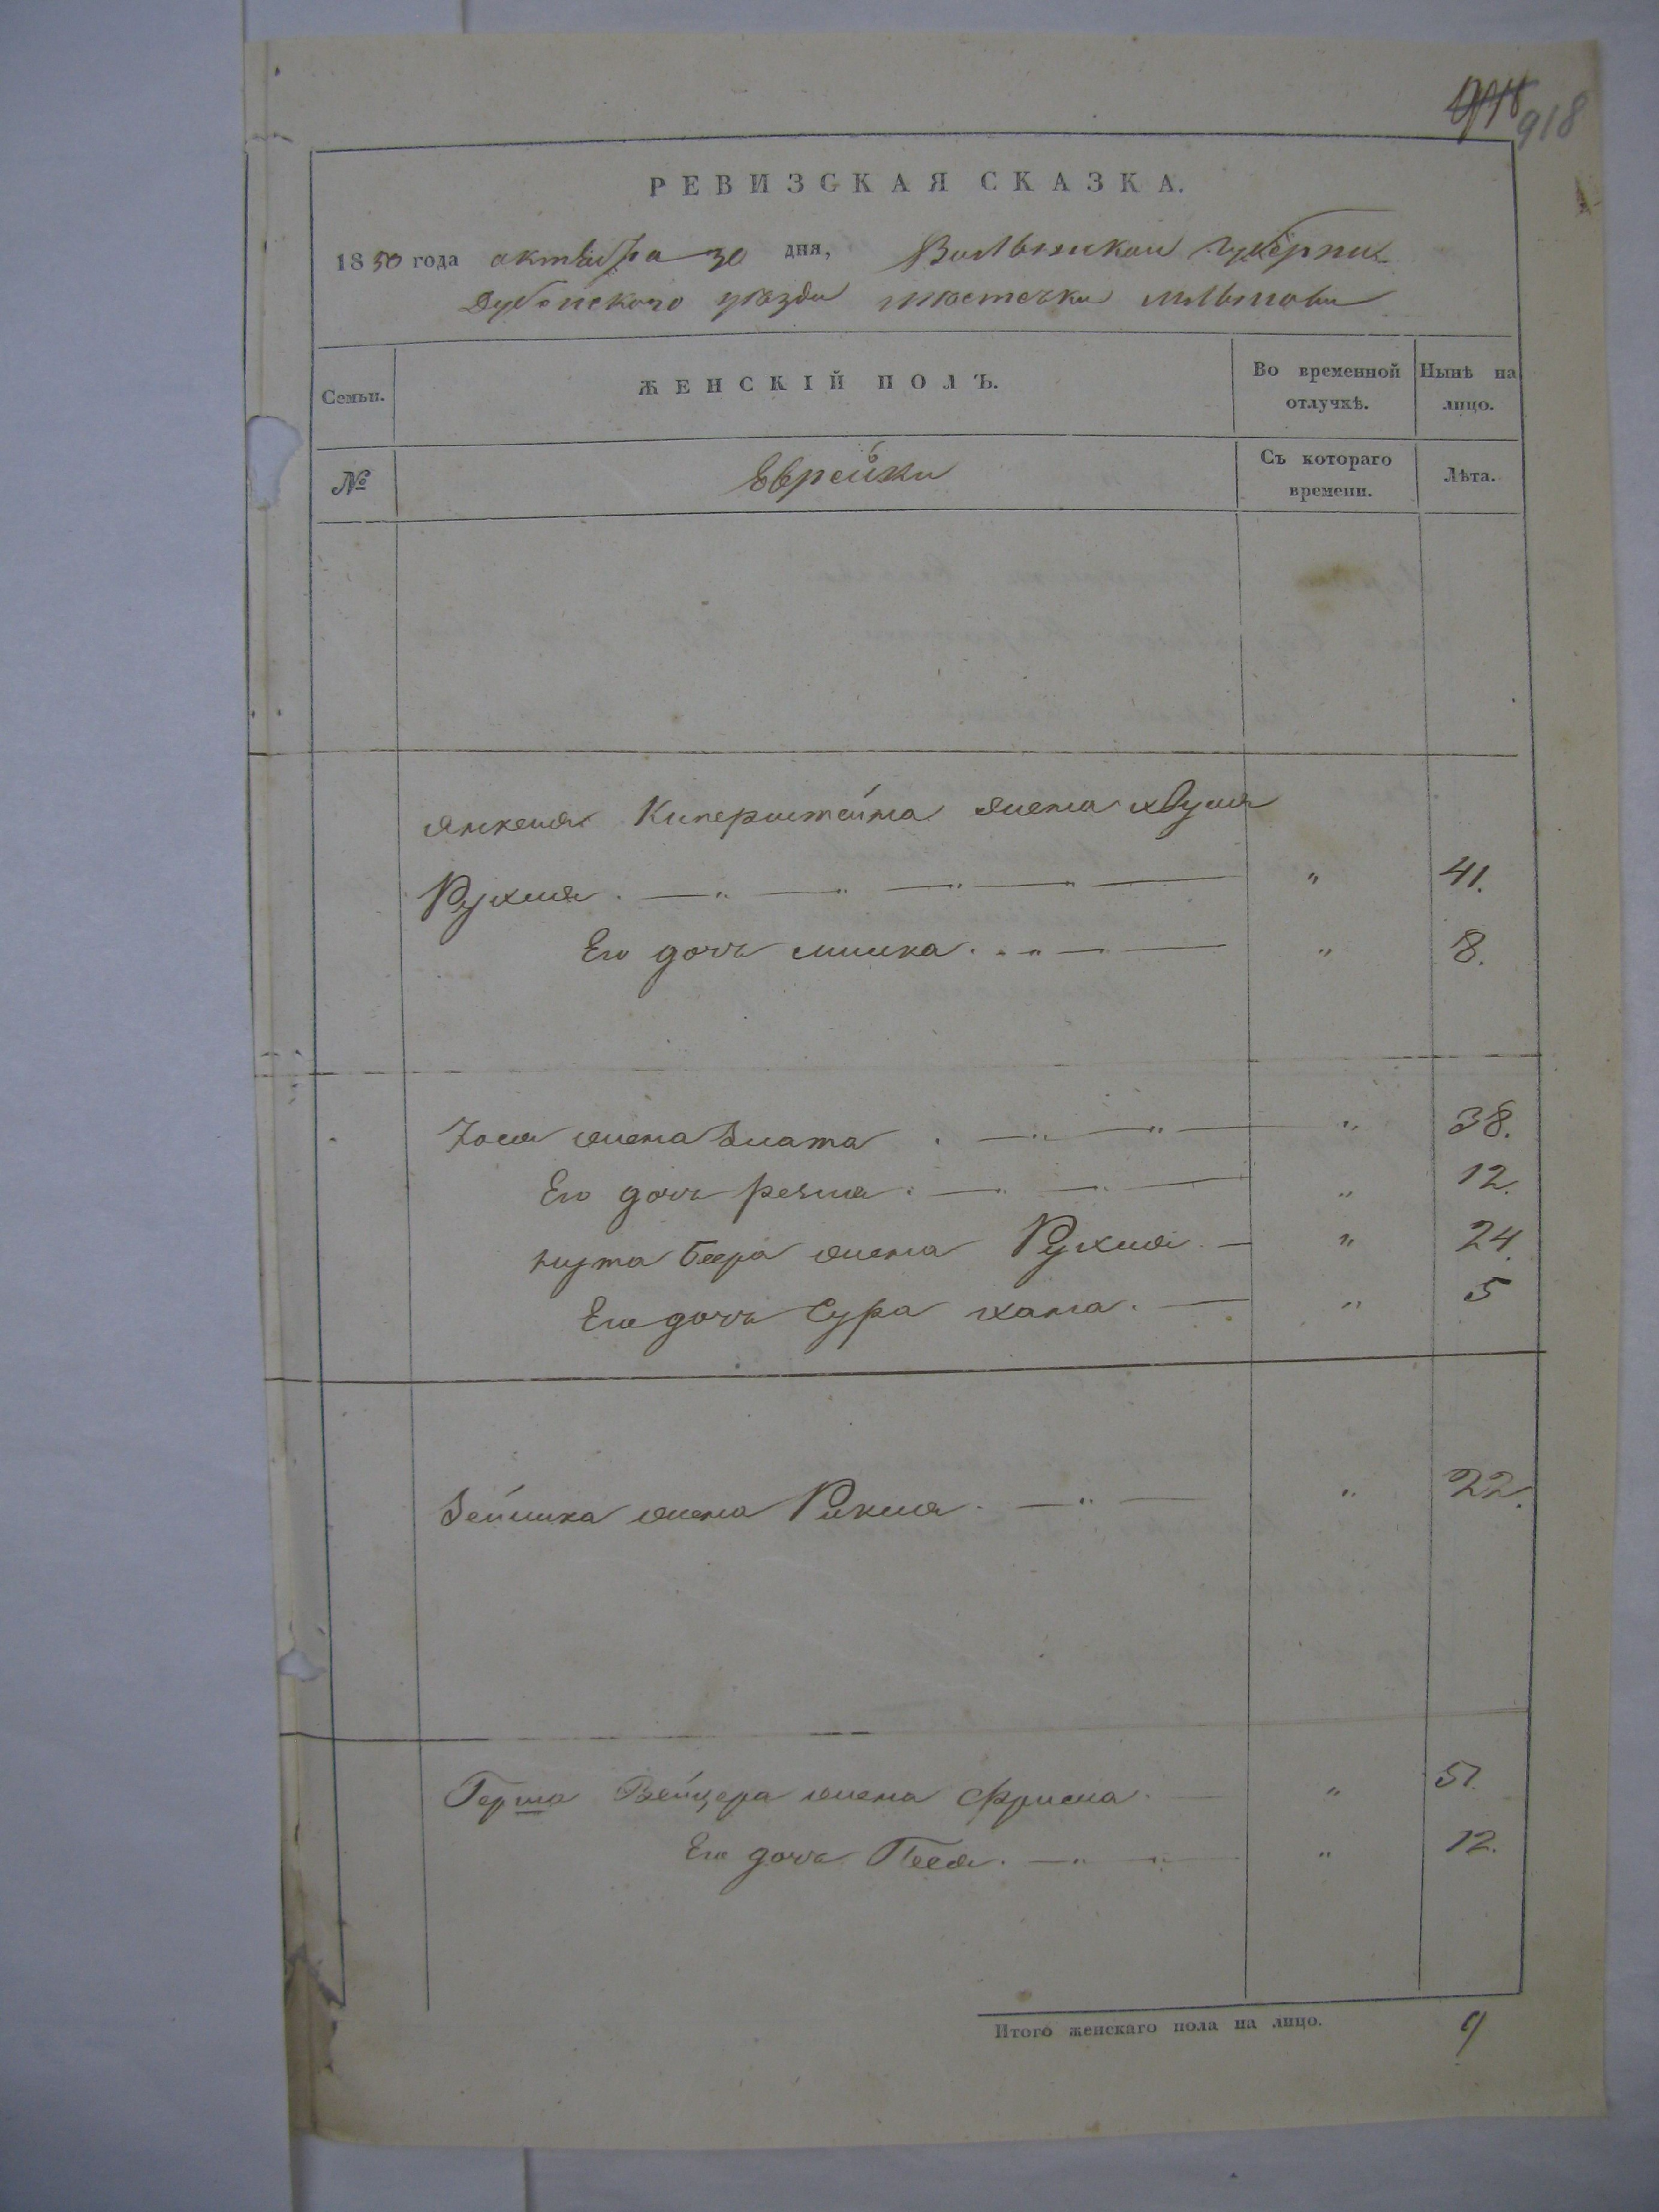 918
РЕВИЗСКАЯ СКАЗКА.
1850 года октября 30 дня, Волынской губернии
Дубенского уезда местечка Млынова
Семьи.
ЖЕНСКІЙ ПОЛЪ.
Во временной отлучкѣ.
Нынѣ на лицо.
№
Еврейки
Съ котораго времени.
Лѣта.
Янкеля Киперштейна жена
Рухля . — „ — „ — „ — „ — „ 41.
Его дочь . „ — „ 8.
Йося жена Злата . — „ — „ — „ 38.
Его дочь . — „ — „ — „ 12.
Нута Бера жена Рухля . — „ 24.
Его дочь Сура хана . — „ 5
Зейлика жена Рикля . — „ — „ 22.
Герша Вейцера жена . — „ 51.
Его дочь Песя . — „ — „ — „ 12.
Итого женскаго пола на лицо. 9